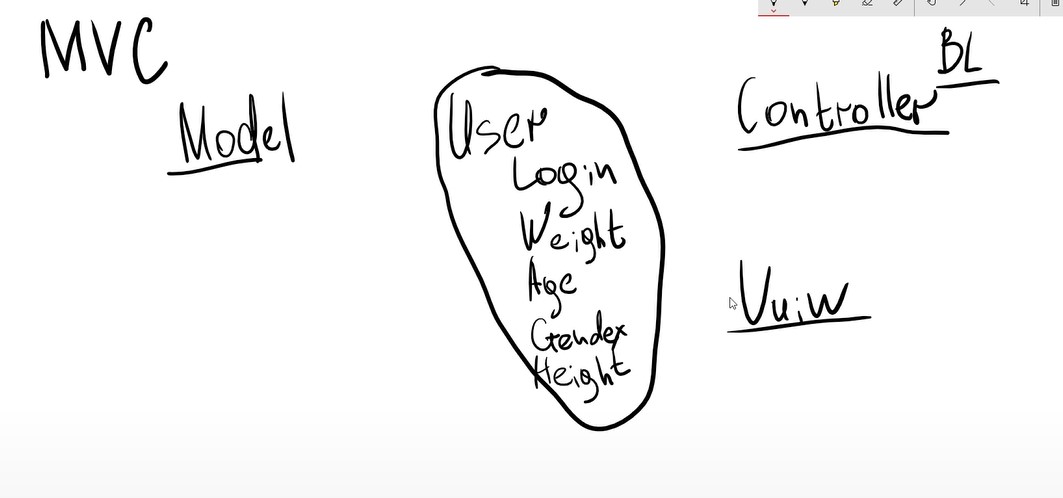 MVC
Model
User
Login
Weight
Age
Gender
Height
Controller BL
Vuiw